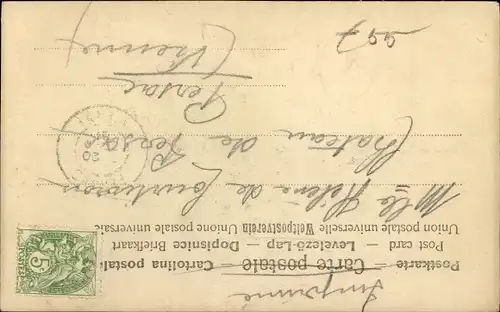 Imprimé
Postkarte — Carte postale — Cartolina postale
Post card — Levelező-Lap — Dopisnice Briefkart
Union postale universelle Weltpostverein Unione postale universale
Mlle Hélène de
Château de Persac
Persac
Vienne
297
5